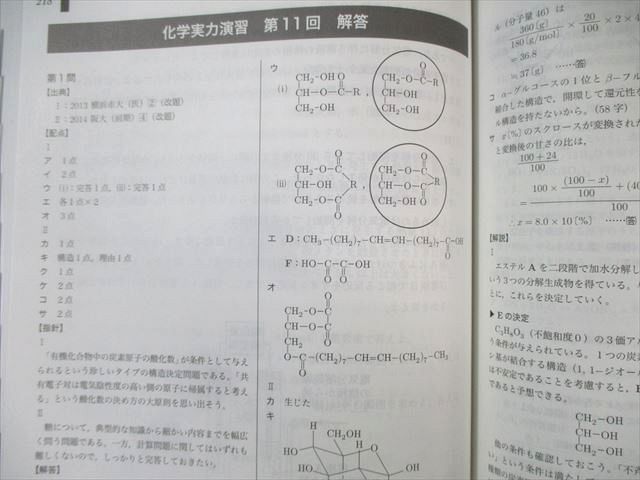 218
化学実力演習 第11回 解答
第1問
【出典】
Ⅰ：2013 横浜市大（医）②（改題）
Ⅱ：2014 阪大（前期）④（改題）
【配点】
Ⅰ
ア 1点
イ 2点
ウ (i)：完答1点，(ii)：完答1点
エ 各1点×2
オ 3点
Ⅱ
カ 1点
キ 構造1点，理由1点
ク 1点
ケ 2点
コ 2点
サ 2点
【指針】
Ⅰ
「有機化合物中の炭素原子の酸化数」が条件として与え
られるという珍しいタイプの構造決定問題である。「共
有電子対は電気陰性度の高い側の原子に帰属すると考え
る」という酸化数の決め方の大原則を思い出そう。
Ⅱ
糖について，典型的な知識から細かい内容までを幅広
く問う問題である。一方，計算問題に関してはいずれも
難しくないので，しっかりと完答しておきたい。
【解答】
ウ
(i)
CH₂-OH O
CH-O-C-R ,
CH₂-OH
O
CH₂-O-C-R
CH-OH
CH₂-OH
(ii)
O
CH₂-O-C
CH-OH R ,
CH₂-O-C
O
O
CH₂-O-C
CH-O-C R
CH₂-OH O
エ D：CH₃-(CH₂)₇-CH=CH-(CH₂)₇-C-OH
O
F：HO-C-C-OH
O O
オ
O
CH₂-O-C
CH-O-C
CH₂ O
O-C-(CH₂)₇-CH=CH-(CH₂)₇-CH₃
O
Ⅱ
カ 生じた
キ
CH₂OH
H
HO
O
OH
HO
ル（分子量46）は
360〔g〕/180〔g/mol〕 × 20/100 × 2 × 4
= 36.8
≒ 37〔g〕 ……答
コ α-グルコースの1位とβ-フル
結合した構造で，開環して還元性を
ル構造を持たないから。（58字）
サ x〔%〕のスクロースが変換された
と変換後の甘さの比は，
100 + 24
100
100 × (100 − x)/100 + (40
100
∴ x = 8.0 × 10〔%〕 ……答
【解説】
Ⅰ
エステルAを二段階で加水分解し
いう3つの分解生成物を得ている。
とに，これらを決定していく。
▶ Eの決定
C₃H₈O₃（不飽和度0）の3価アル
う条件が与えられている。1つの炭素
ン基が結合する構造（1, 1-ジオール
は不安定であることを考慮すると，E
であると予想できる。
CH₂-OH
CH-OH
CH₂-OH
他の条件も確認しておこう。「不斉
い」という条件は満たして